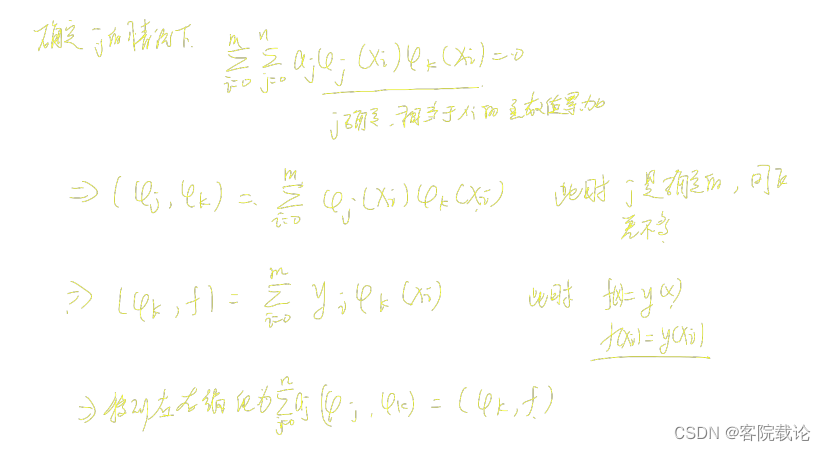 确定 j 的情况下 $\sum_{i=0}^{m}\sum_{j=0}^{n} a_j\varphi_j(x_i)\varphi_k(x_i)=0$
j 确定、相当于 xi 的 累加
⇒ $(\varphi_j,\varphi_k)=\sum_{i=0}^{m}\varphi_j(x_i)\varphi_k(x_i)$ 此时 j 是确定的,
⇒ $(\varphi_k,f)=\sum_{i=0}^{m}y_i\varphi_k(x_i)$ 此时 f(x)=y(x)
f(xi)=y(xi)
⇒ 左右 化为 $\sum_{j=0}^{n}a_j(\varphi_j,\varphi_k)=(\varphi_k,f)$
CSDN @客院载论